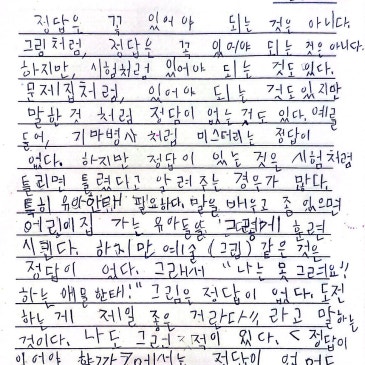 정답은 꼭 있어야 되는 것은 아니다.
그림처럼, 정답은 꼭 있어야 되는 것은 아니다.
하지만, 시험처럼 있어야 되는 것도 있다.
문제집처럼, 있어야 되는 것도 있지만
말한 것 처럼 정답이 없는 것도 있다. 예를
들어, 기마병사 처럼 미스터리는 정답이
없다. 하지만 정답이 있는 것은 시험처럼
틀리면 틀렸다고 알려주는 경우가 많다.
특히 유아한태 필요하다. 말을 배우고 좀 있으면
어린이집 가는 유아들을 그렇게 훈련
시킨다. 하지만 예술 (그림) 같은 것은
정답이 없다. 그래서 "나는 못 그려요"!
하는 애들한태!" 그림은 정답이 없다. 도전
하는 게 제일 좋은 거란다", 라고 말하는
것이다. 나도 그런 적이 있다. < 정답이
있어야 할까? 에서는 정답이 없어도